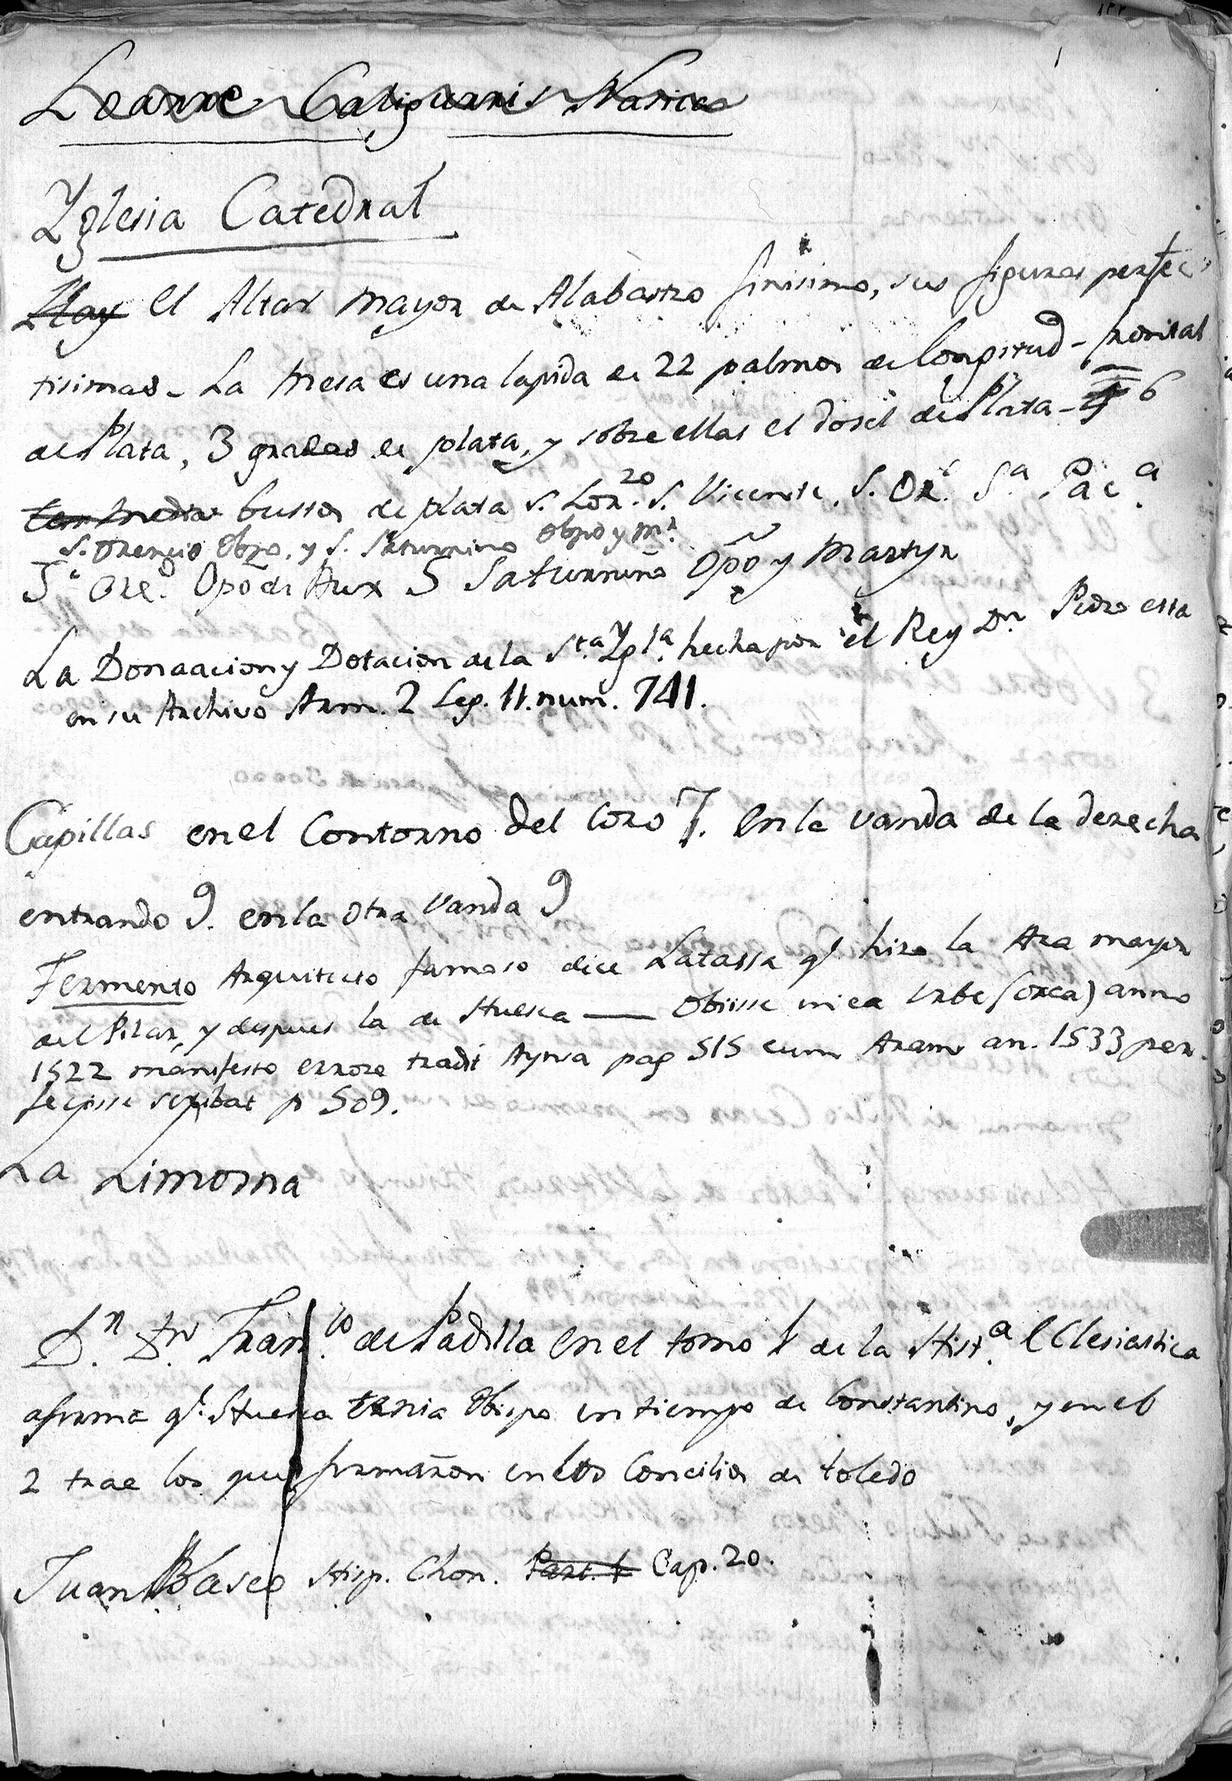 Yglesia Catedral
Hay el Altar mayor de Alabastro finisimo, sus figuras perfec
tisimas - La mesa es una lapida de 22 palmos de longitud - frontal
de Plata, 3 gradas de plata, y sobre ellas el dosel de Plata - 6
bustos de plata S. Lor.zo S. Vicente, S. Or.s S.a Pac.a
S. Orencio Obpo, y S. Saturnino Obpo y Mr
S. Ore.o Opo de Aux S Saturnino Opo y Martyr
La Donaacion y Dotacion de la S.ta Ygl.a hecha por el Rey Dn Pedro esta
en su Archivo Arm. 2 Leg. 11. num. 741.
Capillas en el Contorno del Coro 7. en la vanda de la derecha
entrando 9. en la otra vanda 9
Fermento Arquitecto famoso dice Latassa q.e hizo la Ara mayor
del Pilar, y despues la de Huesca — Obiisse in ea Urbe (Orca) anno
1522 manifesto errore tradit Aynsa pag 515 cum Aram an. 1533 per
fecisse scribat p 509.
La Limosna
D.n Fran.co de Padilla en el tomo 1 de la Hist.a Eclesiastica
afirma q.e Huesca tenia Obispo en tiempo de Constantino, y en el
2 trae los que firmaron en los Concilios de toledo
Juan Vaseo Hisp. Chon. Part. 1 Cap. 20.